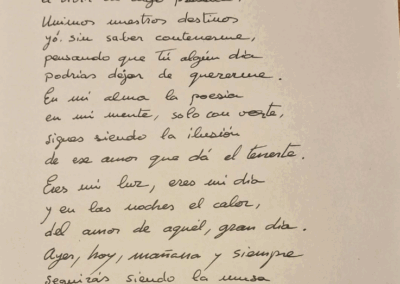 Unimos nuestros destinos
yó sin saber contenerme,
pensando que tú algún día
podrías déjar de quererme.
En mi alma la poesia
en mi mente, solo con verte,
sigues siendo la ilusión
de ese amor que dá el tenerte.
Eres mi luz, eres mi día
y en las noches el calor,
del amor de aquél, gran día.
Ayer, hoy, mañana y siempre
seguirás siendo la musa